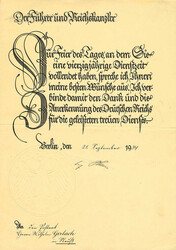 Der Führer und Reichskanzler
Zur Feier des Tages, an dem Sie
eine vierzigjährige Dienstzeit
vollendet haben, spreche ich Ihnen
meine besten Wünsche aus. Ich ver-
binde damit den Dank und die
Anerkennung des Deutschen Reichs
für die geleisteten treuen Dienste.
Berlin, den September 19
Herrn Wilhelm Gerlach
in